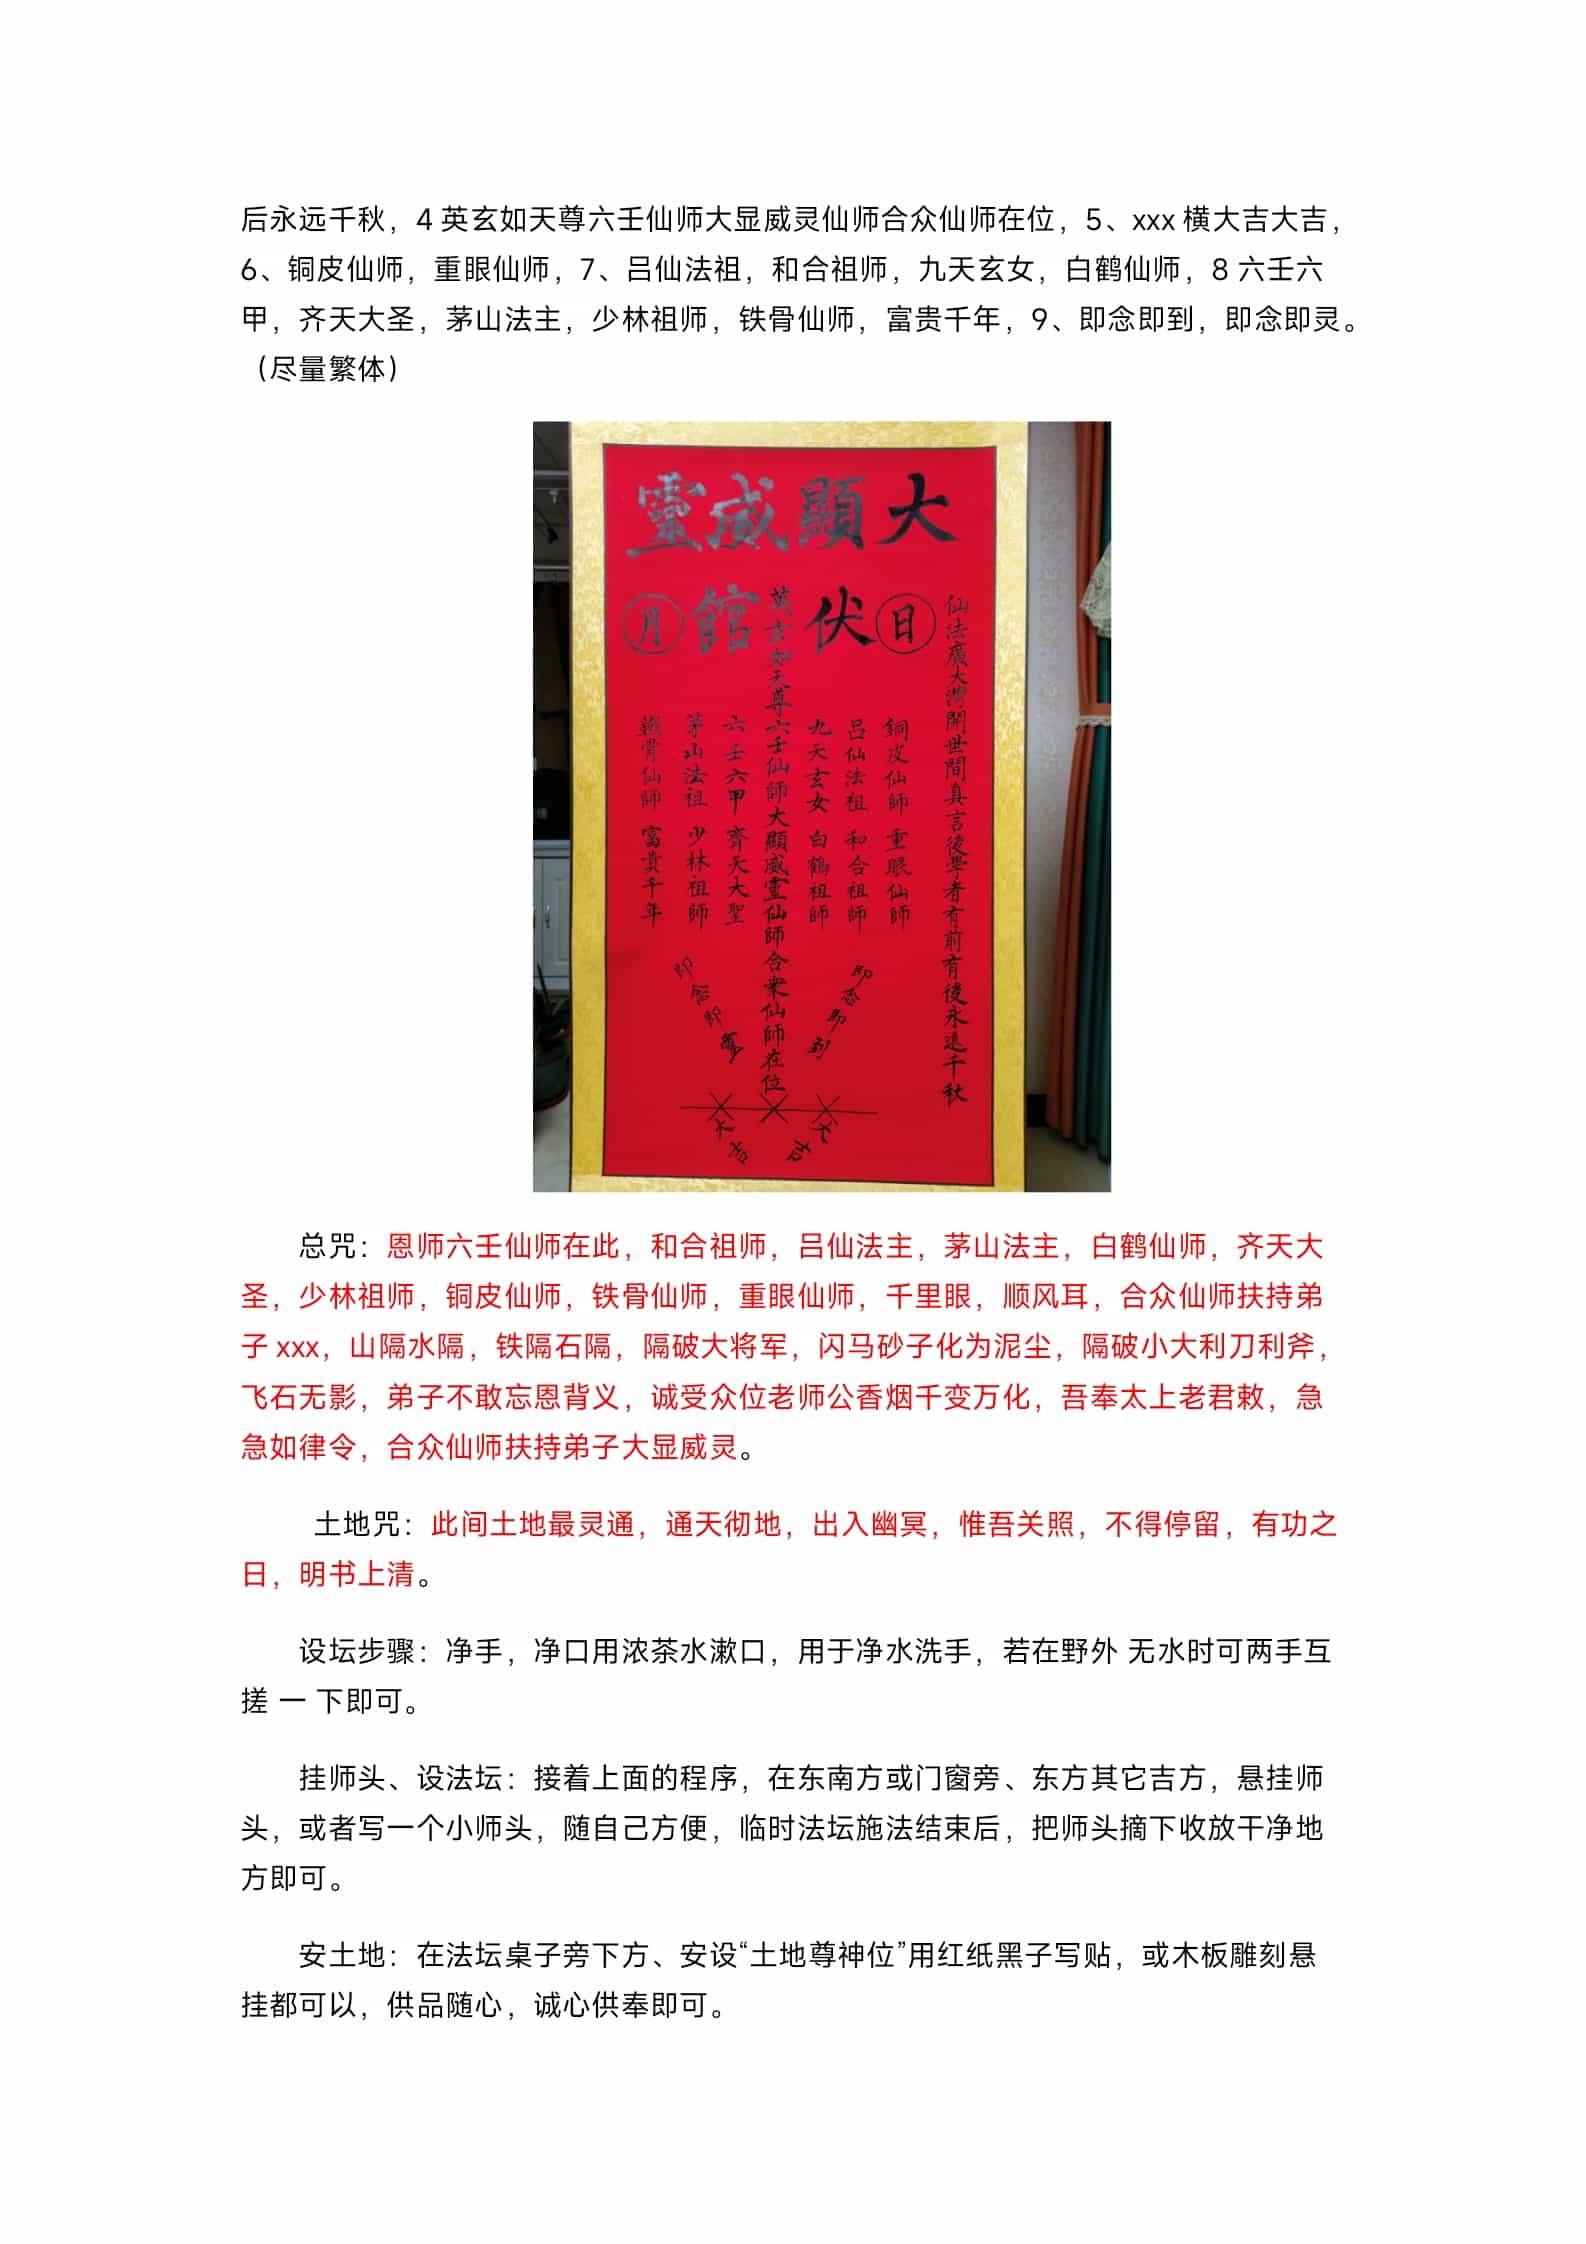 后永远千秋，4 英玄如天尊六壬仙师大显威灵仙师合众仙师在位，5、xxx 横大吉大吉，
6、铜皮仙师，重眼仙师，7、吕仙法祖，和合祖师，九天玄女，白鹤仙师，8 六壬六
甲，齐天大圣，茅山法主，少林祖师，铁骨仙师，富贵千年，9、即念即到，即念即灵。
（尽量繁体）
大顯威靈
日
伏
館
月
仙法廣大灣開世間真言後學者有前有後永遠千秋
銅皮仙師 重眼仙師
呂仙法祖 和合祖師
九天玄女 白鶴祖師
英玄如天尊六壬仙師大顯威靈仙師合衆仙師在位
六壬六甲 齊天大聖
茅山法祖 少林祖師
鐵骨仙師 富貴千年
即念即到
即念即靈
大吉
大吉
总咒：恩师六壬仙师在此，和合祖师，吕仙法主，茅山法主，白鹤仙师，齐天大
圣，少林祖师，铜皮仙师，铁骨仙师，重眼仙师，千里眼，顺风耳，合众仙师扶持弟
子 xxx，山隔水隔，铁隔石隔，隔破大将军，闪马砂子化为泥尘，隔破小大利刀利斧，
飞石无影，弟子不敢忘恩背义，诚受众位老师公香烟千变万化，吾奉太上老君敕，急
急如律令，合众仙师扶持弟子大显威灵。
土地咒：此间土地最灵通，通天彻地，出入幽冥，惟吾关照，不得停留，有功之
日，明书上清。
设坛步骤：净手，净口用浓茶水漱口，用于净水洗手，若在野外 无水时可两手互
搓 一 下即可。
挂师头、设法坛：接着上面的程序，在东南方或门窗旁、东方其它吉方，悬挂师
头，或者写一个小师头，随自己方便，临时法坛施法结束后，把师头摘下收放干净地
方即可。
安土地：在法坛桌子旁下方、安设“土地尊神位”用红纸黑子写贴，或木板雕刻悬
挂都可以，供品随心，诚心供奉即可。